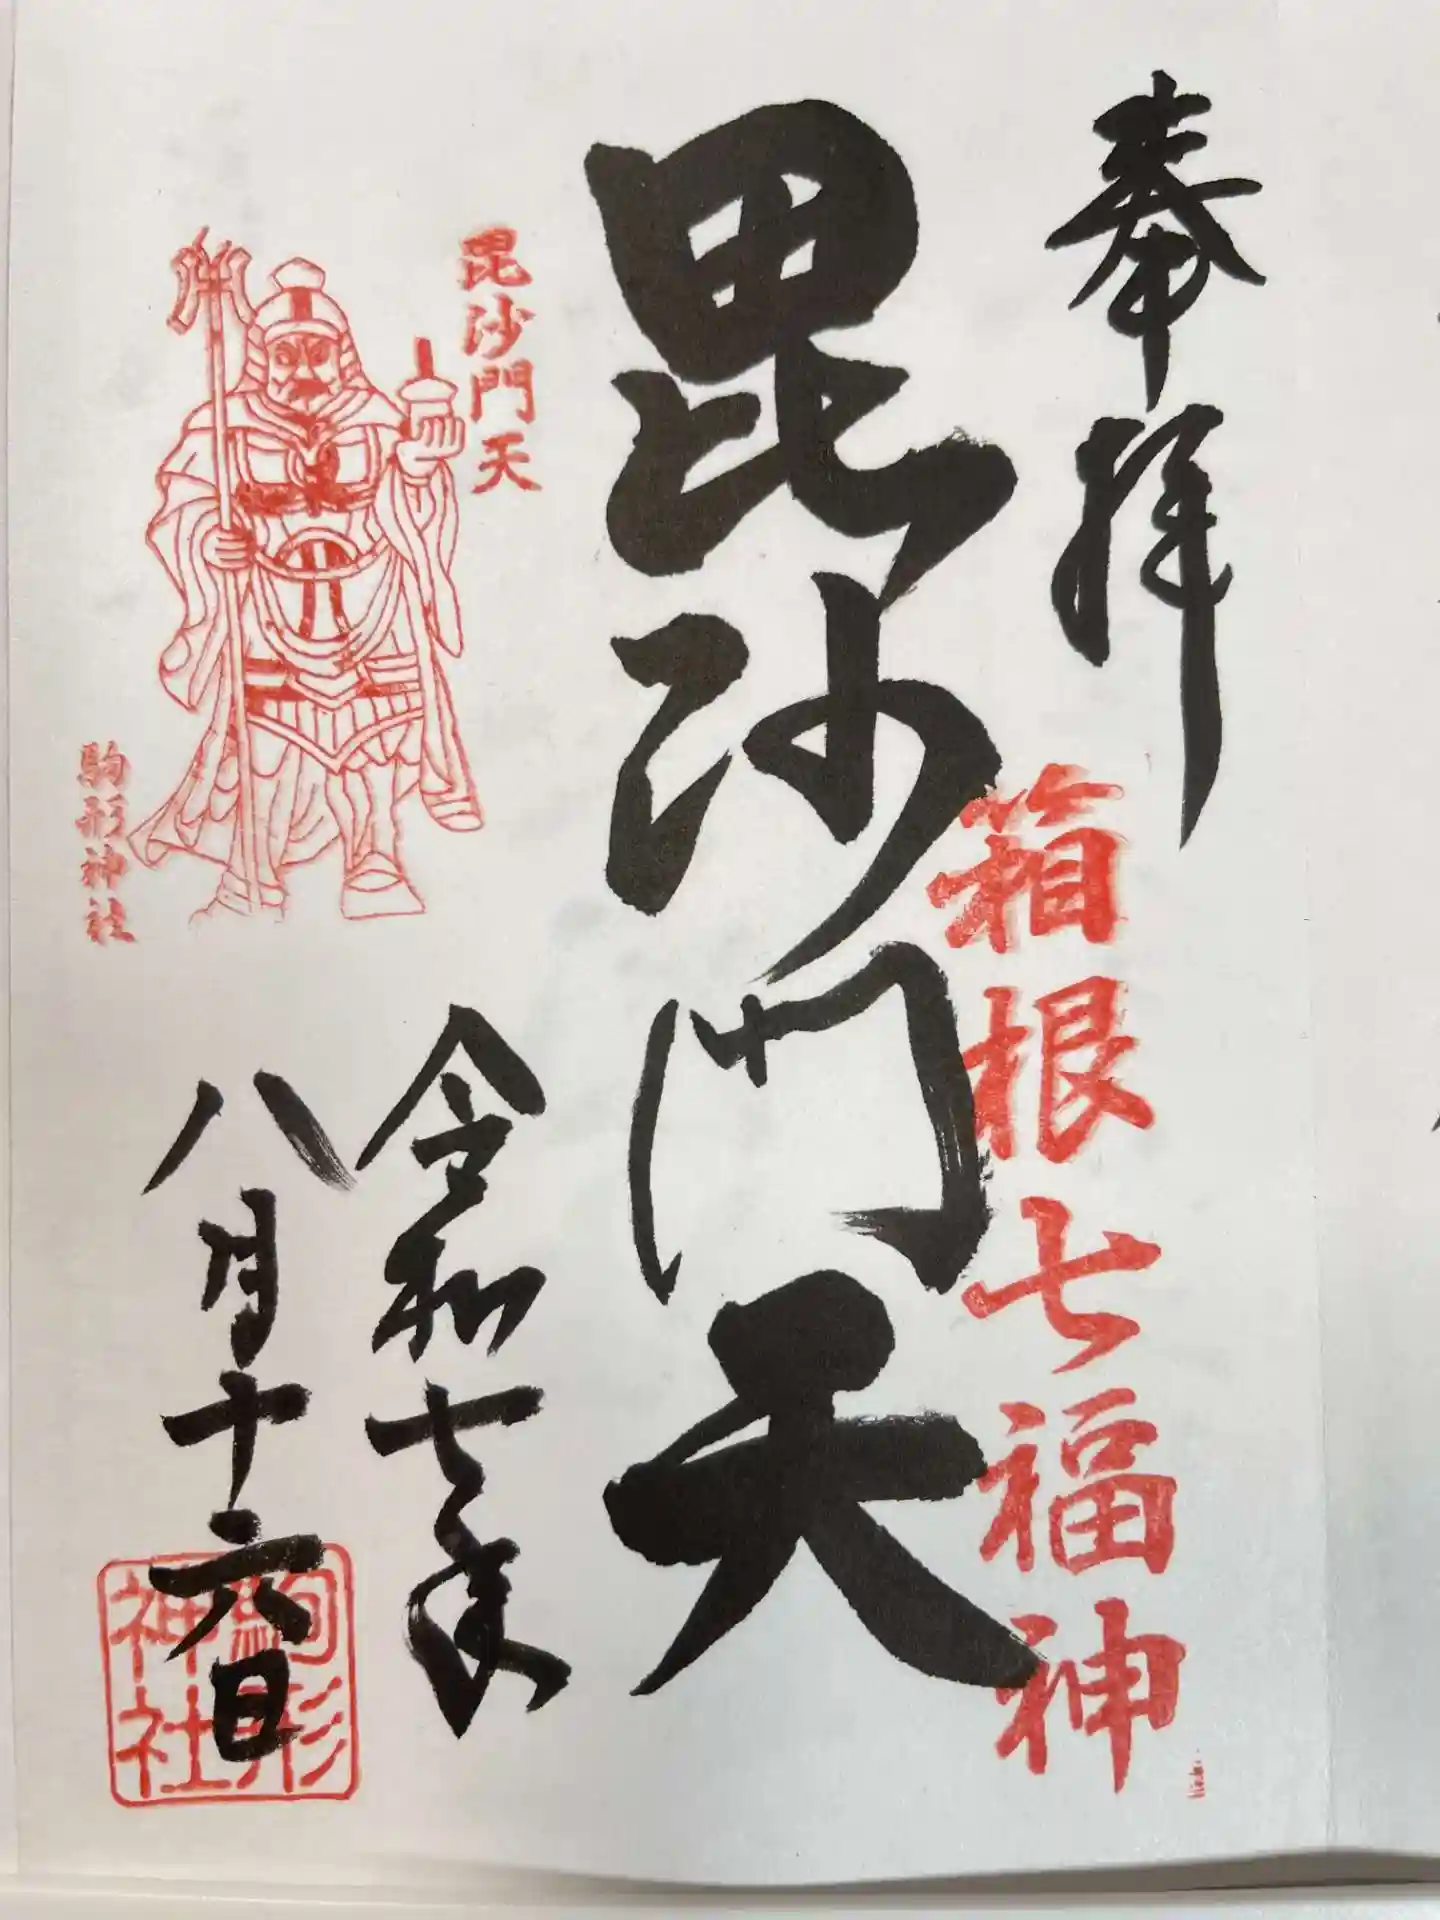 奉拝
箱根七福神
毘沙門天
毘沙門天
駒形神社
令和七年
八月十六日
駒形神社